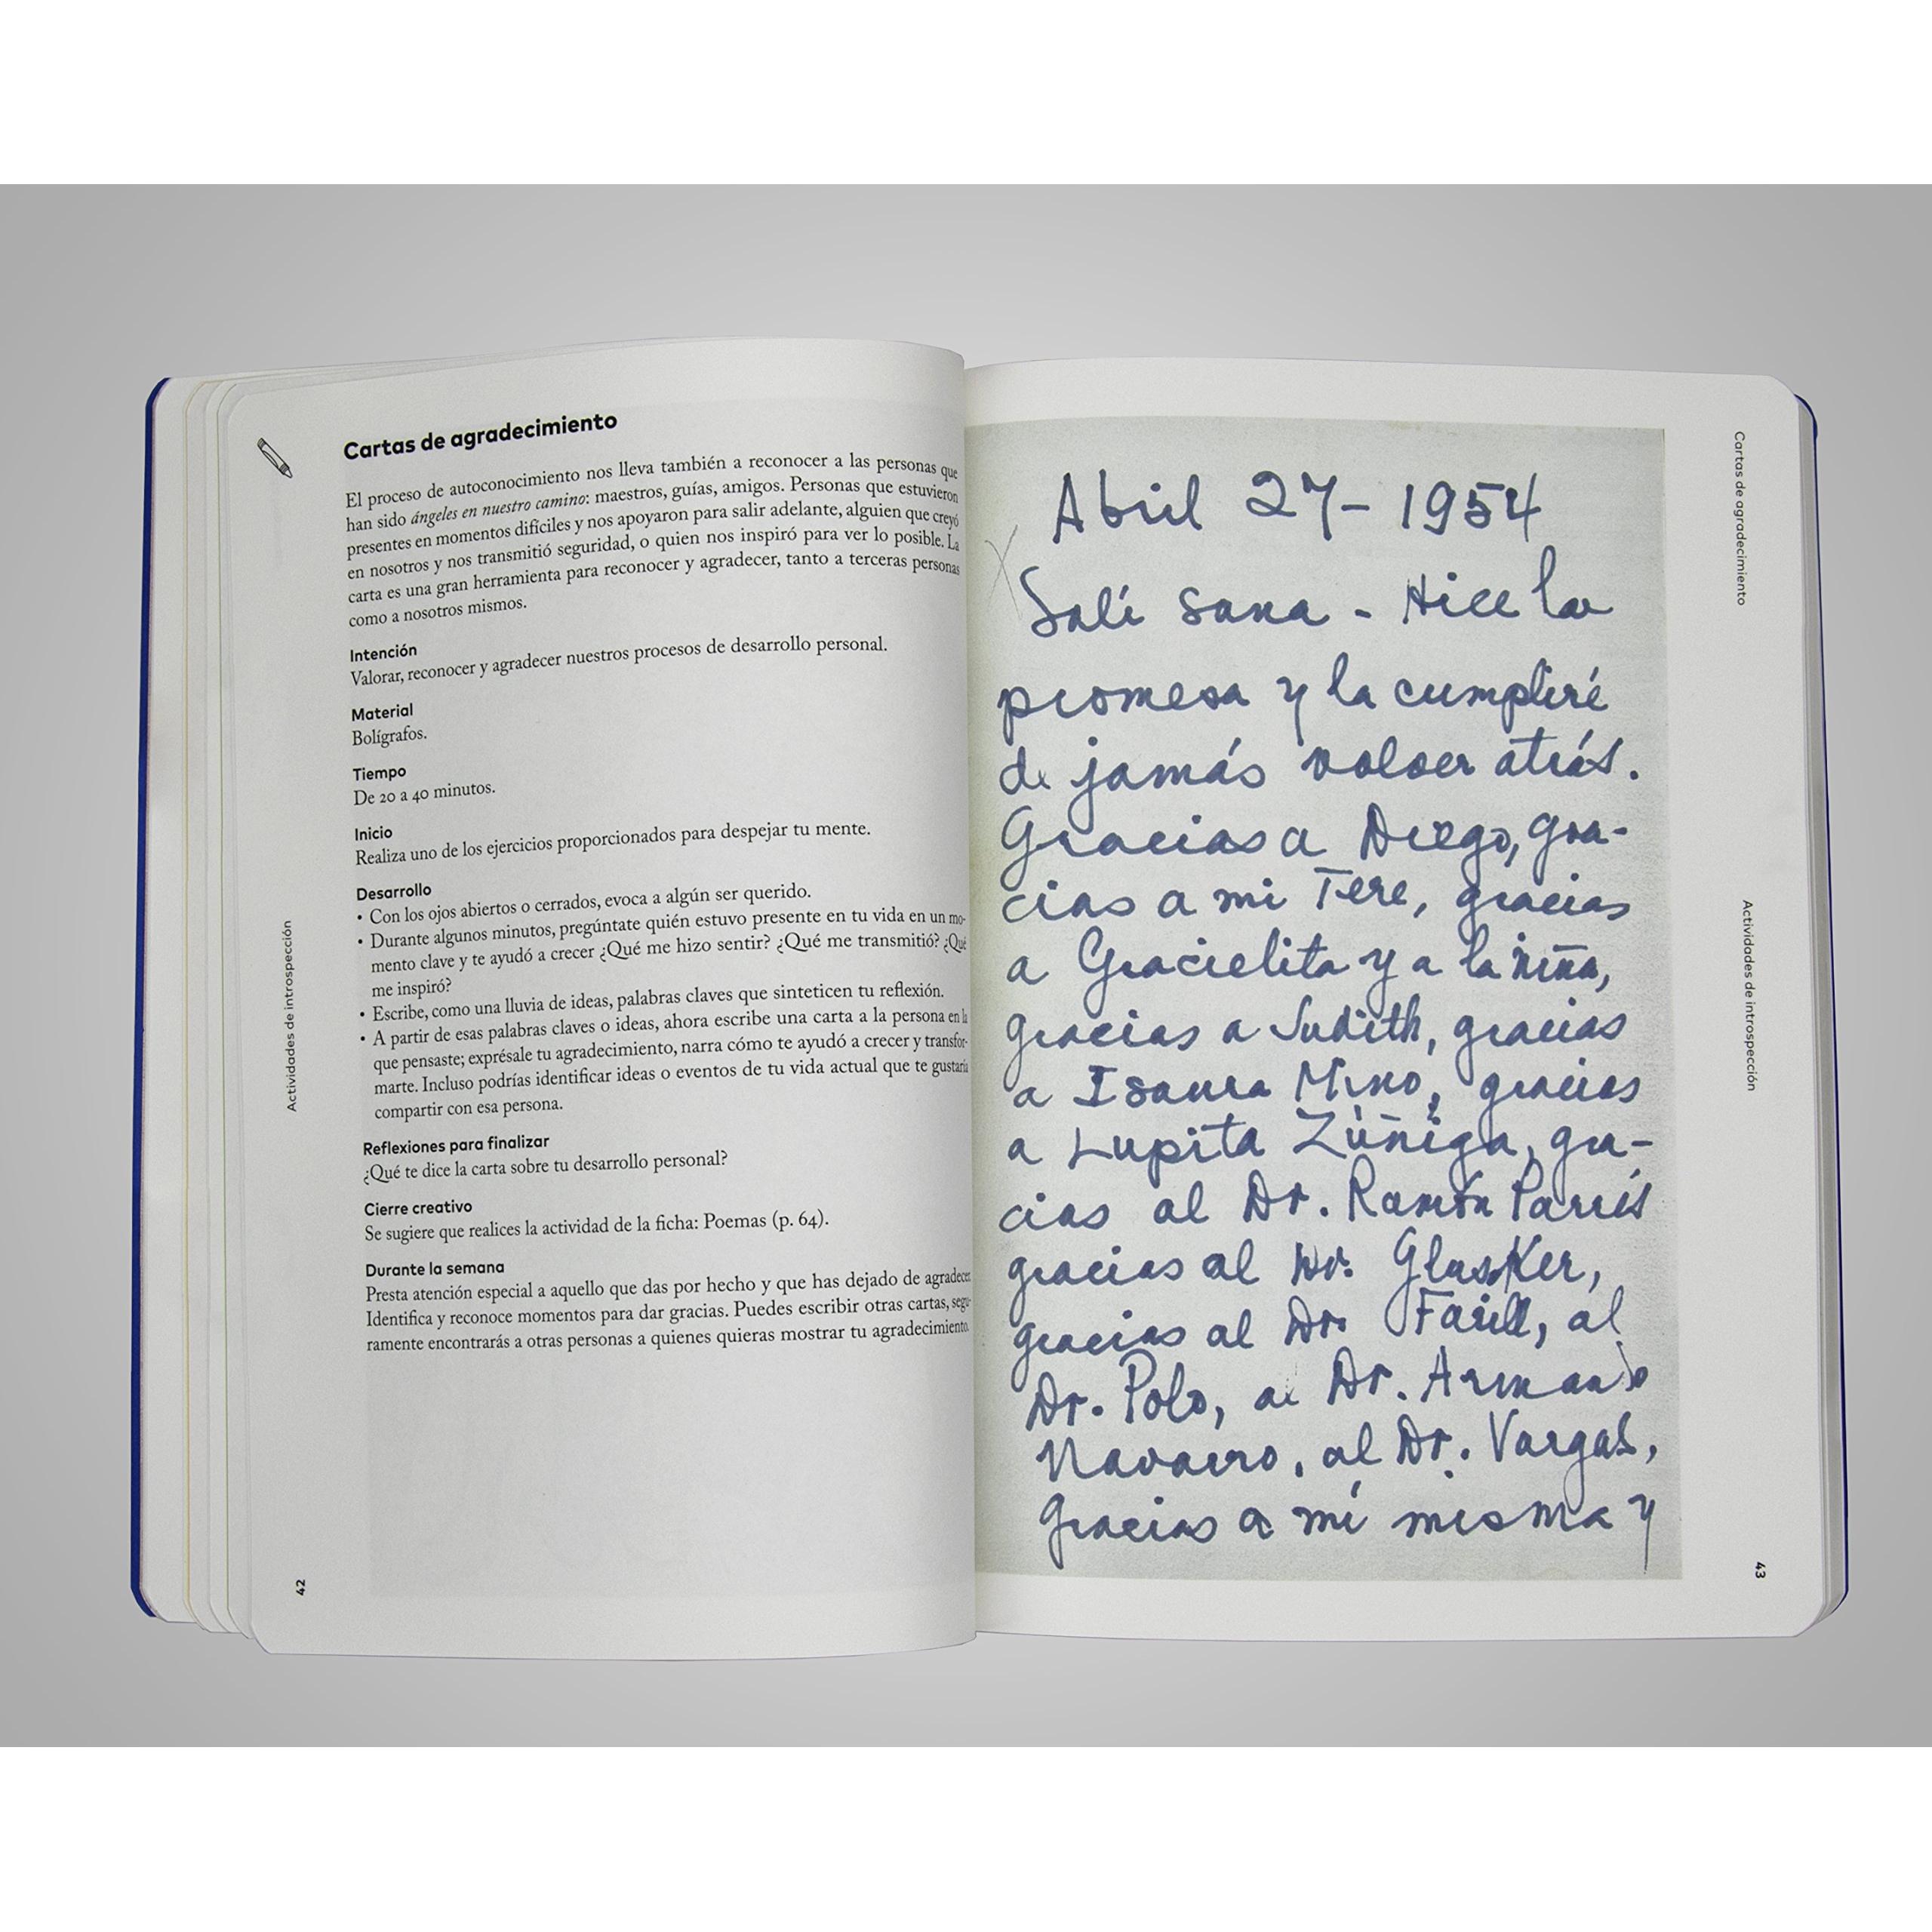 Cartas de agradecimiento
El proceso de autoconocimiento nos lleva también a reconocer a las personas que
han sido ángeles en nuestro camino: maestros, guías, amigos. Personas que estuvieron
presentes en momentos difíciles y nos apoyaron para salir adelante, alguien que creyó
en nosotros y nos transmitió seguridad, o quien nos inspiró para ver lo posible. La
carta es una gran herramienta para reconocer y agradecer, tanto a terceras personas
como a nosotros mismos.
Intención
Valorar, reconocer y agradecer nuestros procesos de desarrollo personal.
Material
Bolígrafos.
Tiempo
De 20 a 40 minutos.
Inicio
Realiza uno de los ejercicios proporcionados para despejar tu mente.
Desarrollo
• Con los ojos abiertos o cerrados, evoca a algún ser querido.
• Durante algunos minutos, pregúntate quién estuvo presente en tu vida en un mo-
mento clave y te ayudó a crecer ¿Qué me hizo sentir? ¿Qué me transmitió? ¿Qué
me inspiró?
• Escribe, como una lluvia de ideas, palabras claves que sinteticen tu reflexión.
• A partir de esas palabras claves o ideas, ahora escribe una carta a la persona en la
que pensaste; exprésale tu agradecimiento, narra cómo te ayudó a crecer y transfor-
marte. Incluso podrías identificar ideas o eventos de tu vida actual que te gustaría
compartir con esa persona.
Reflexiones para finalizar
¿Qué te dice la carta sobre tu desarrollo personal?
Cierre creativo
Se sugiere que realices la actividad de la ficha: Poemas (p. 64).
Durante la semana
Presta atención especial a aquello que das por hecho y que has dejado de agradecer.
Identifica y reconoce momentos para dar gracias. Puedes escribir otras cartas, segu-
ramente encontrarás a otras personas a quienes quieras mostrar tu agradecimiento.
Actividades de introspección
42
Abril 27 - 1954
Salí sana - Hice la
promesa y la cumpliré
de jamás volver atrás.
Gracias a Diego, gra-
cias a mi Tere, gracias
a Gracielita y a la niña,
gracias a Judith, gracias
a Isaura Mino, gracias
a Lupita Zúñiga, gra-
cias al Dr. Ramón Parrés
gracias al Dr. Glusker,
gracias al Dr. Farill, al
Dr. Polo, al Dr. Armando
Navarro, al Dr. Vargas,
gracias a mí misma y
Cartas de agradecimiento
Actividades de introspección
43